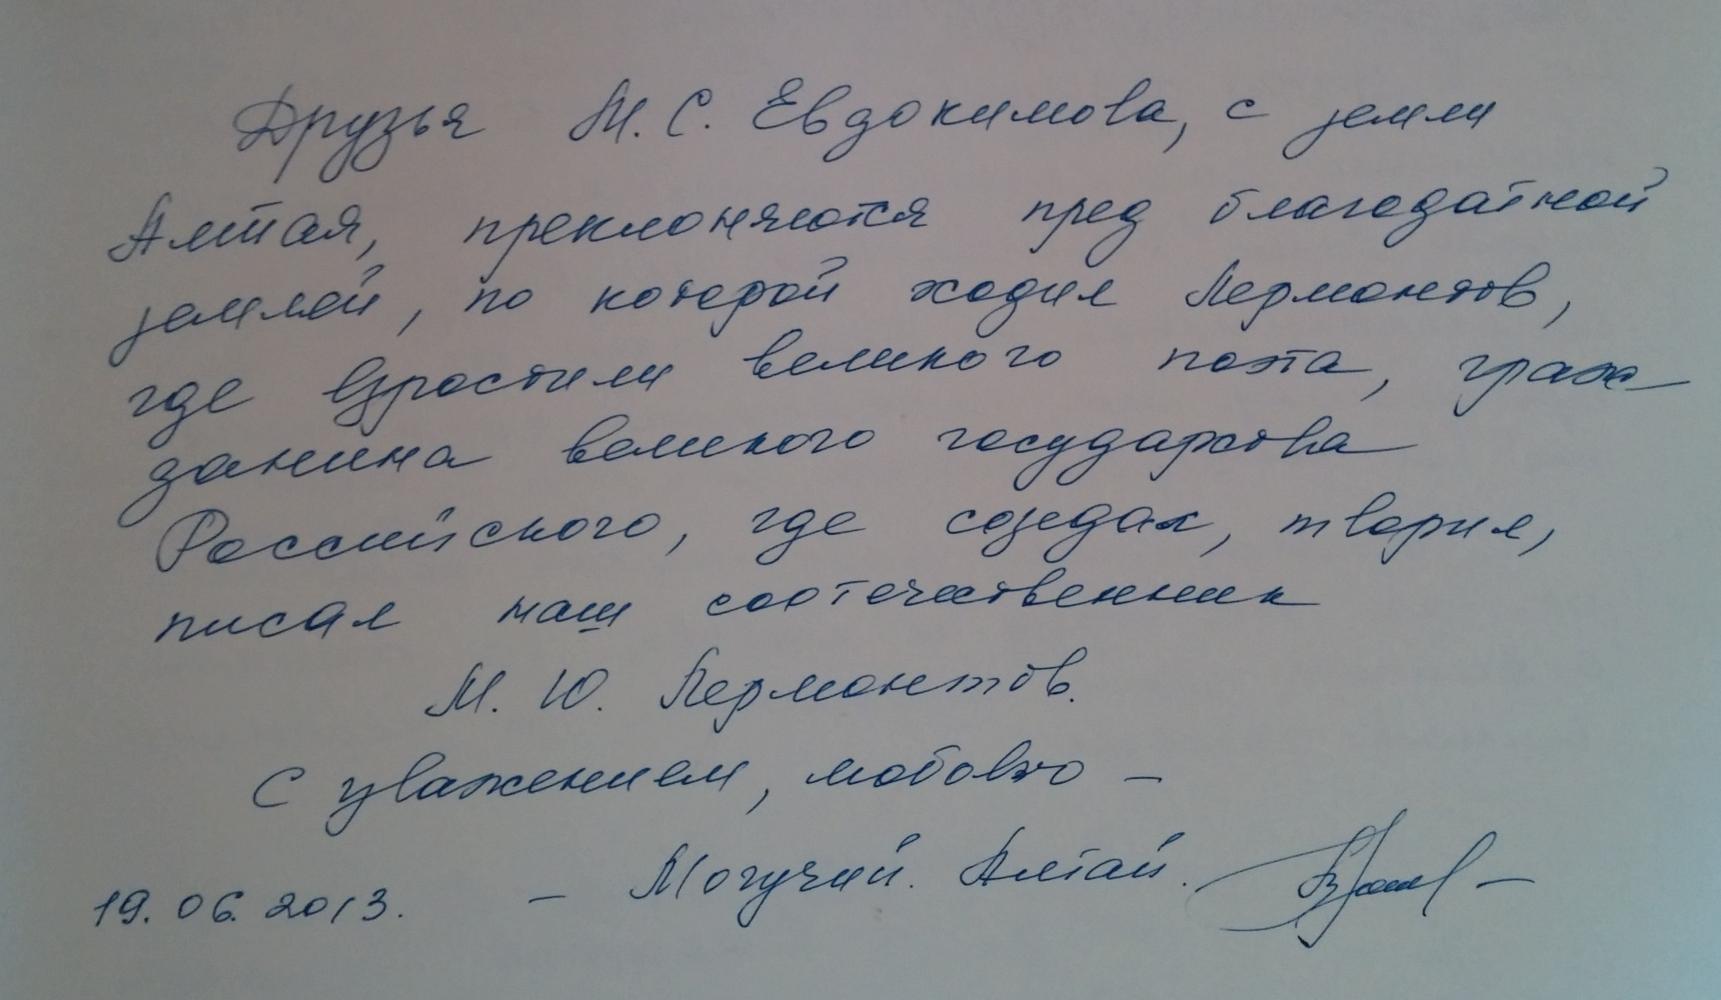 Друзья М. С. Евдокимова, с земли
Алтая, преклоняются пред благодатной
землёй, по которой ходил Лермонтов,
где взростили великого поэта, граж-
данина великого государства
Российского, где созедал, творил,
писал наш соотечественник
М. Ю. Лермонтов.
С уважением, любовью –
19.06.2013. – Могучий Алтай.